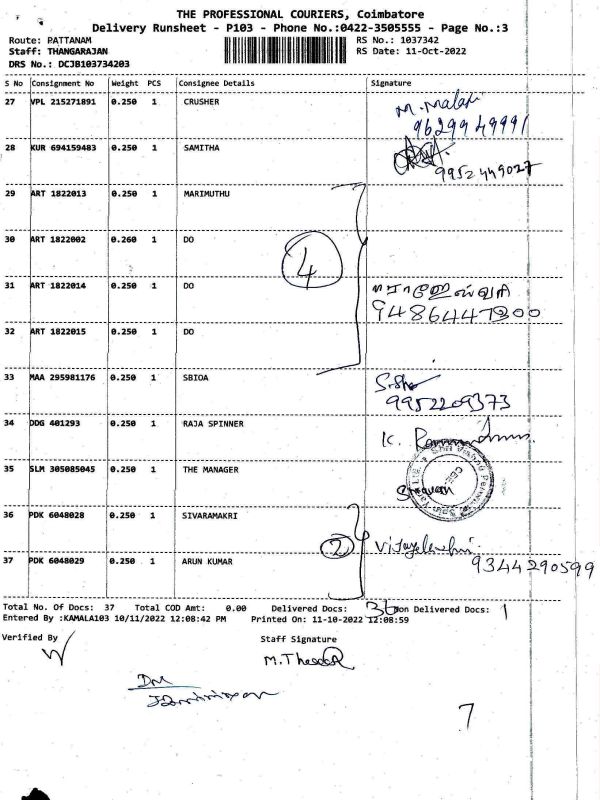 THE PROFESSIONAL COURIERS, Coimbatore
Delivery Runsheet - P103 - Phone No.:0422-3505555 - Page No.:3
Route: PATTANAM RS No.: 1037342
Staff: THANGARAJAN RS Date: 11-Oct-2022
DRS No.: DCJB103734203
S No Consignment No Weight PCS Consignee Details Signature
27 VPL 215271891 0.250 1 CRUSHER M. Malar
9629949991
28 KUR 694159483 0.250 1 SAMITHA
9952449027
29 ART 1822013 0.250 1 MARIMUTHU
30 ART 1822002 0.260 1 DO
4
31 ART 1822014 0.250 1 DO
9486447300
32 ART 1822015 0.250 1 DO
33 MAA 295981176 0.250 1 SBIOA
9952209373
34 DDG 401293 0.250 1 RAJA SPINNER K.
35 SLM 305085045 0.250 1 THE MANAGER
36 PDK 6048028 0.250 1 SIVARAMAKRI
2 Vijayalakshmi.
37 PDK 6048029 0.250 1 ARUN KUMAR 9344290599
Total No. Of Docs: 37 Total COD Amt: 0.00 Delivered Docs: 36 Non Delivered Docs: 1
Entered By :KAMALA103 10/11/2022 12:08:42 PM Printed On: 11-10-2022 12:08:59
Verified By Staff Signature
7